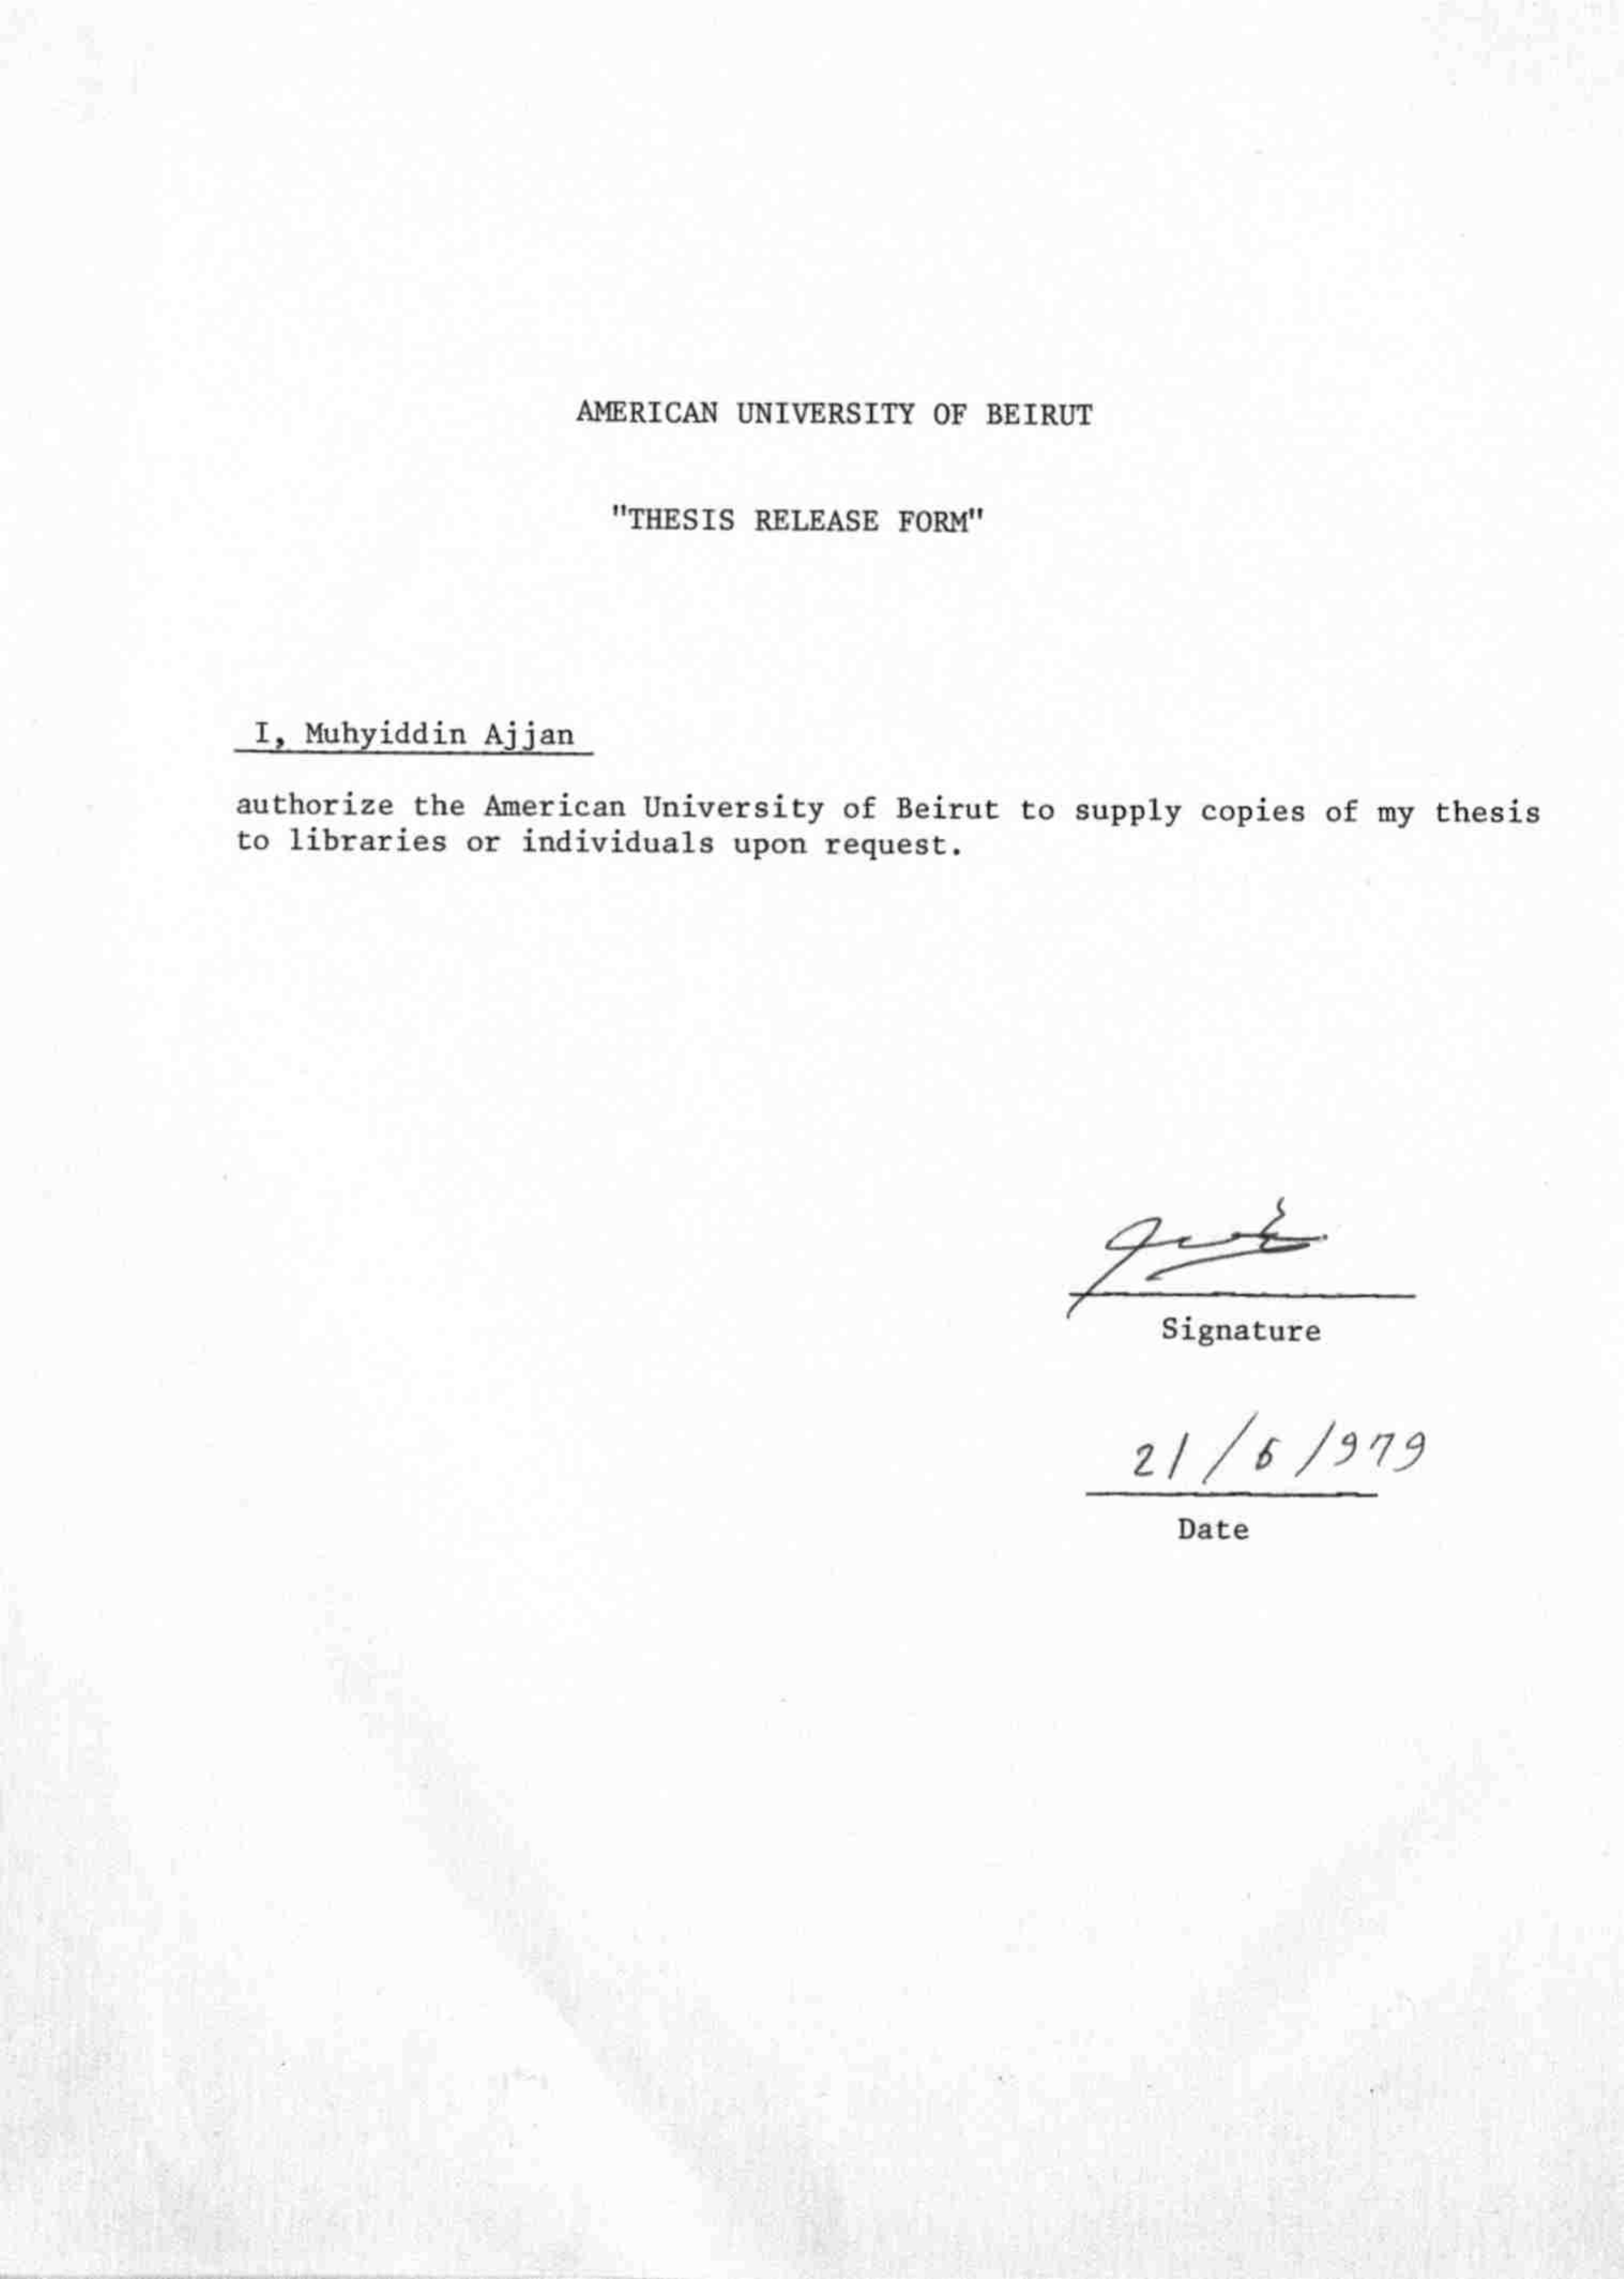 AMERICAN UNIVERSITY OF BEIRUT
"THESIS RELEASE FORM"
I, Muhyiddin Ajjan
authorize the American University of Beirut to supply copies of my thesis
to libraries or individuals upon request.
Signature
21/6/979
Date